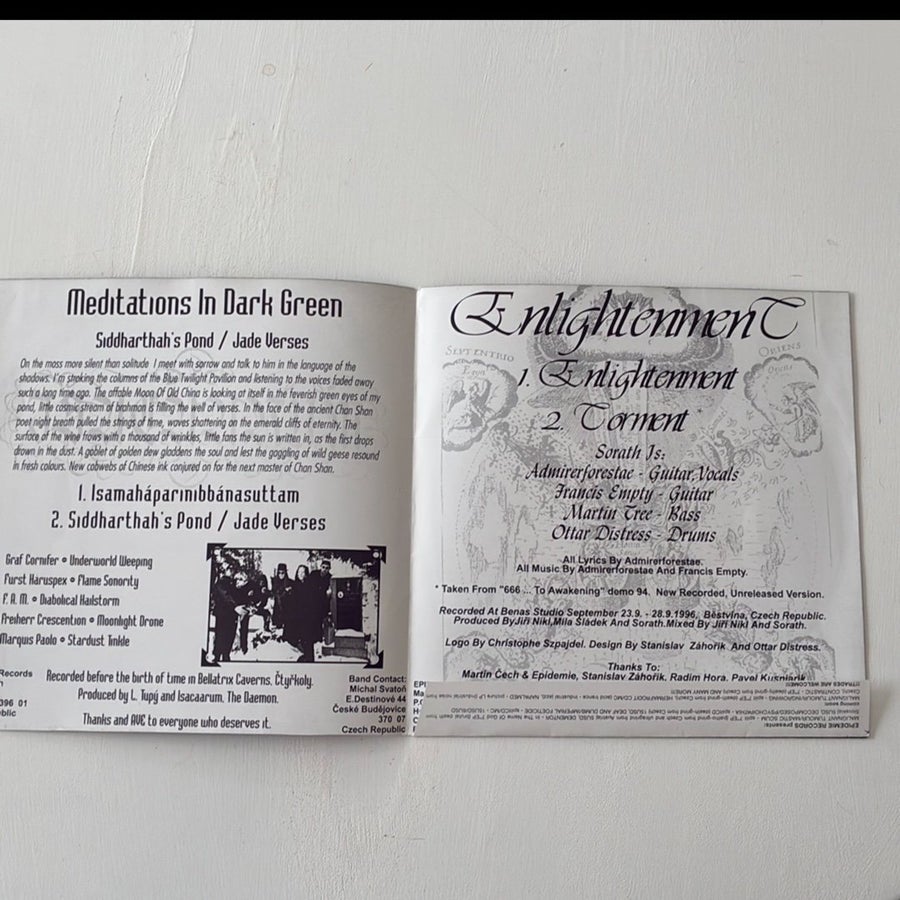 Meditations In Dark Green
Siddharthah's Pond / Jade Verses
On the moss more silent than solitude I meet with sorrow and talk to him in the language of the
shadows. I'm stroking the columns of the Blue Twilight Pavilion and listening to the voices faded away
such a long time ago. The affable Moon Of Old China is looking at itself in the feverish green eyes of my
pond, little cosmic stream of brahman is filling the well of verses. In the face of the ancient Chan Shan
poet night breath pulled the strings of time, waves shattering on the emerald cliffs of eternity. The
surface of the wine frows with a thousand of wrinkles, little fans the sun is written in, as the first drops
drown in the dust. A goblet of golden dew gladdens the soul and lest the gaggling of wild geese resound
in fresh colours. New cobwebs of Chinese ink conjured on for the next master of Chan Shan.
1. Isamaháparinibbánasuttam
2. Siddharthah's Pond / Jade Verses
Graf Cornifer • Underworld Weeping
Furst Haruspex • Flame Sonority
F. A. M. • Diabolical Hailstorm
Freiherr Crescention • Moonlight Drone
Marquis Paolo • Stardust Tinkle
Records
396 01
Recorded before the birth of time in Bellatrix Caverns, Čtyřkoly.
Produced by L. Tupý and Isacaarum, The Daemon.
Thanks and AVE to everyone who deserves it..
Band Contact:
Michal Svatoň
E.Destinové 44
České Budějovice
370 07
Czech Republic
EnlightenmenT
SEPTENTRIO
ORIENS
1. Enlightenment
2. Torment
Sorath Is:
Admirerforestae - Guitar,Vocals
Francis Empty - Guitar
Martin Tree - Bass
Ottar Distress - Drums
All Lyrics By Admirerforestae.
All Music By Admirerforestae And Francis Empty.
* Taken From "666 ... To Awakening" demo 94. New Recorded, Unreleased Version.
Recorded At Benas Studio September 23.9. - 28.9.1996, Běstvina, Czech Republic.
Produced By Jiří Nikl,Mila Sládek And Sorath.Mixed By Jiří Nikl And Sorath.
Logo By Christophe Szpajdel. Design By Stanislav Záhořík And Ottar Distress.
Thanks To:
Martin Čech & Epidemie, Stanislav Záhořík, Radim Hora, Pavel
EPIDEMIE RECORDS presents: